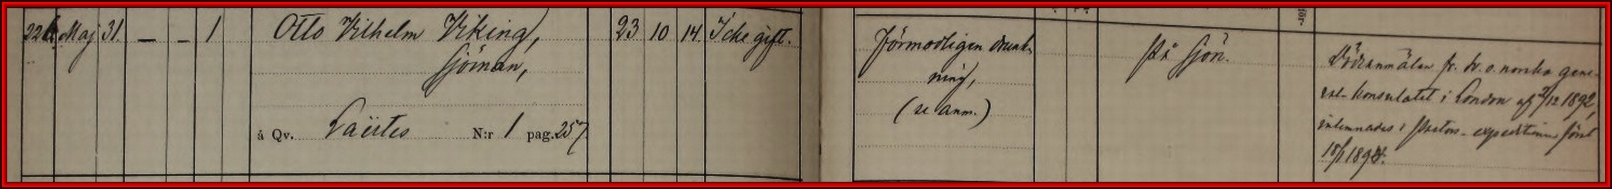 Maj 31. — — 1 Otto Vilhelm Viking, 23 10 14. Icke gift.
Sjöman,
á Qv. Laiites N:r 1 pag. 257
Förmodligen drunk-
ning,
(se anm.)
På sjön.
Dödsanmälan fr. sv. o. norska gene-
ral-konsulatet i London af 2/12 1892
inlemnades i Pastors-expeditionen först